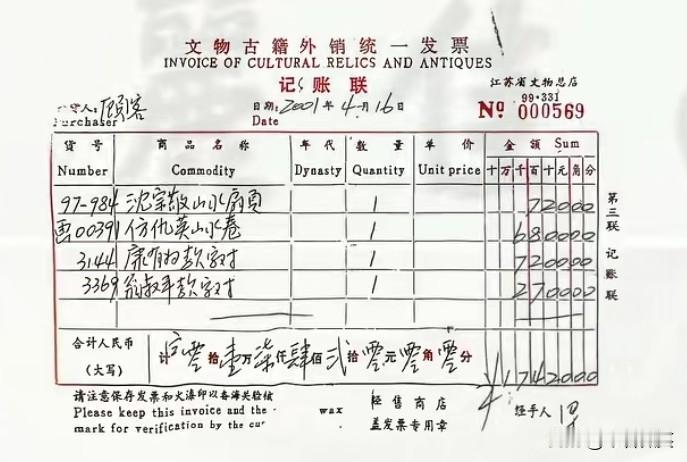 文物古籍外销统一发票
INVOICE OF CULTURAL RELICS AND ANTIQUES
记账联
江苏省文物总店
99·331
人: 顾客
Purchaser
日期: 2001年4月16日
Date
№ 000569
货号 商品名称 年代 数量 单价 金额 Sum
Number Commodity Dynasty Quantity Unit price 十万千百十元角分
97-984 沈宗敬山水扇页 1 72000
画00391 仿仇英山水卷 1 680000
3144 康有为款字对 1 720000
3369 翁叔平款字对 1 270000
第三联 记账联
合计人民币
(大写)
计 零拾壹万柒仟肆佰贰拾零元零角零分 ¥1742000
请注意保存发票和火漆印以备海关验核
Please keep this invoice and the wax
mark for verification by the cur
经售商店
盖发票专用章
经手人